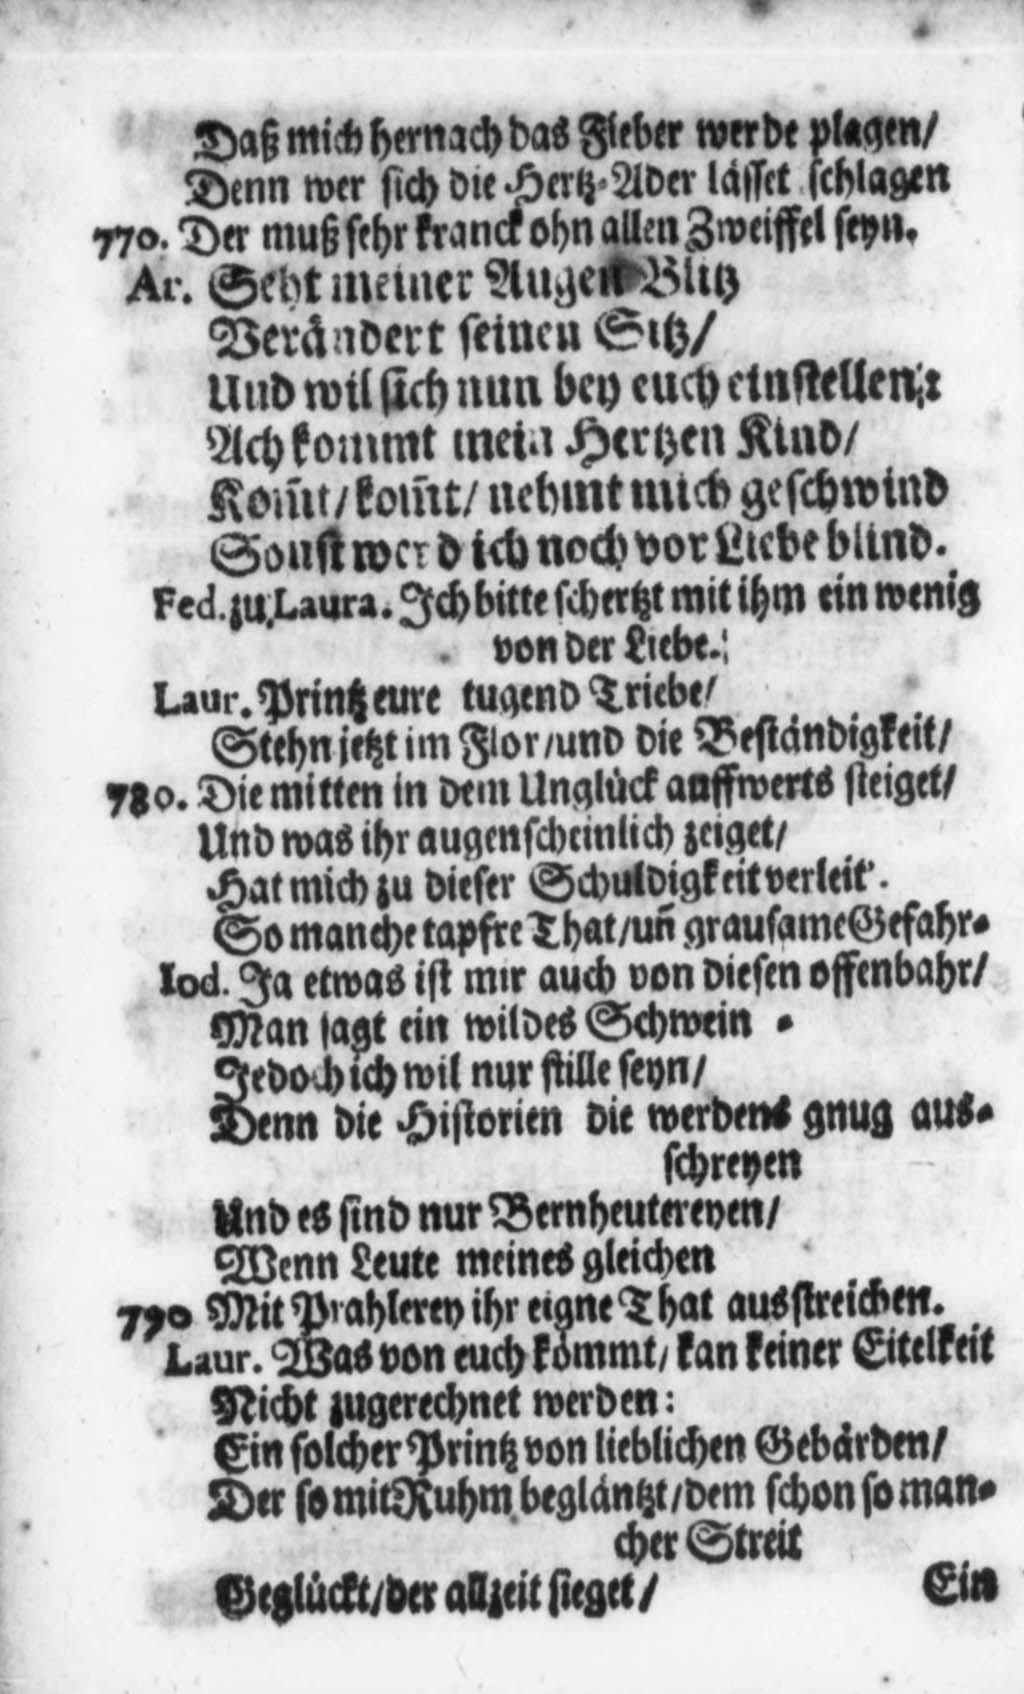 Daß mich hernach das Fieber werde plagen/
Denn wer sich die Hertz-Ader lässet schlagen
770. Der muß sehr kranck ohn allen Zweiffel seyn.
Ar. Seht meiner Augen Blitz
Verändert seinen Sitz/
Und wil sich nun bey euch einstellen:
Ach kommt mein Hertzen Kind/
Kom̃t/ kom̃t/ nehmt mich geschwind
Sonst werd ich noch vor Liebe blind.
Fed. zu Laura. Ich bitte schertzt mit ihm ein wenig
von der Liebe.
Laur. Printz eure tugend Triebe/
Stehn jetzt im Flor/ und die Beständigkeit/
780. Die mitten in dem Unglück auffwerts steiget/
Und was ihr augenscheinlich zeiget/
Hat mich zu dieser Schuldigkeit verleit'.
So manche tapfre That/ uñ grausame Gefahr-
Iod. Ja etwas ist mir auch von diesen offenbahr/
Man sagt ein wildes Schwein -
Jedoch ich wil nur stille seyn/
Denn die Historien die werdens gnug aus-
schreyen
Und es sind nur Bernheutereyen/
Wenn Leute meines gleichen
790 Mit Prahlerey ihr eigne That ausstreichen.
Laur. Was von euch kömmt/ kan keiner Eitelkeit
Nicht zugerechnet werden:
Ein solcher Printz von lieblichen Gebärden/
Der so mit Ruhm begläntzt/ dem schon so man-
cher Streit
Geglückt/ der allzeit sieget/
Ein